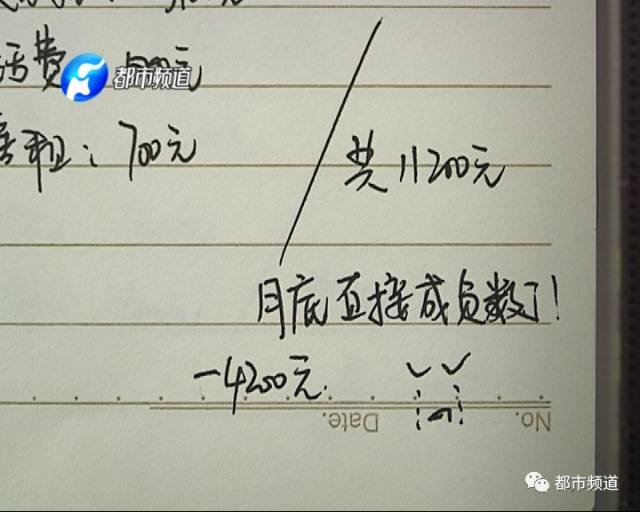 活费
都市频道
房租：700元
共11200元
月底直接成负数了！
-4200元.
No.
Date.
都市频道